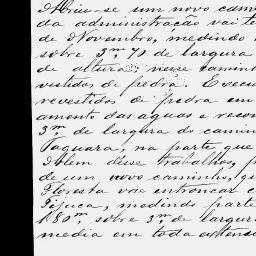 Abriu-se um novo cam
da administração vai te
de Novembro, medindo
sobre 3,m 70 de largura
de altura; nesse caminho
vestidos de pedra. Execu
revestidos de pedra em
amento das aguas e recon
3,m de largura do camin
Taquara, na parte que
Alem desse trabalhos, p
de um novo caminho, qu
Floresta vae entroncar c
Tijuca, medindo parte
180m, sobre 3,m de largur
media em toda a extens